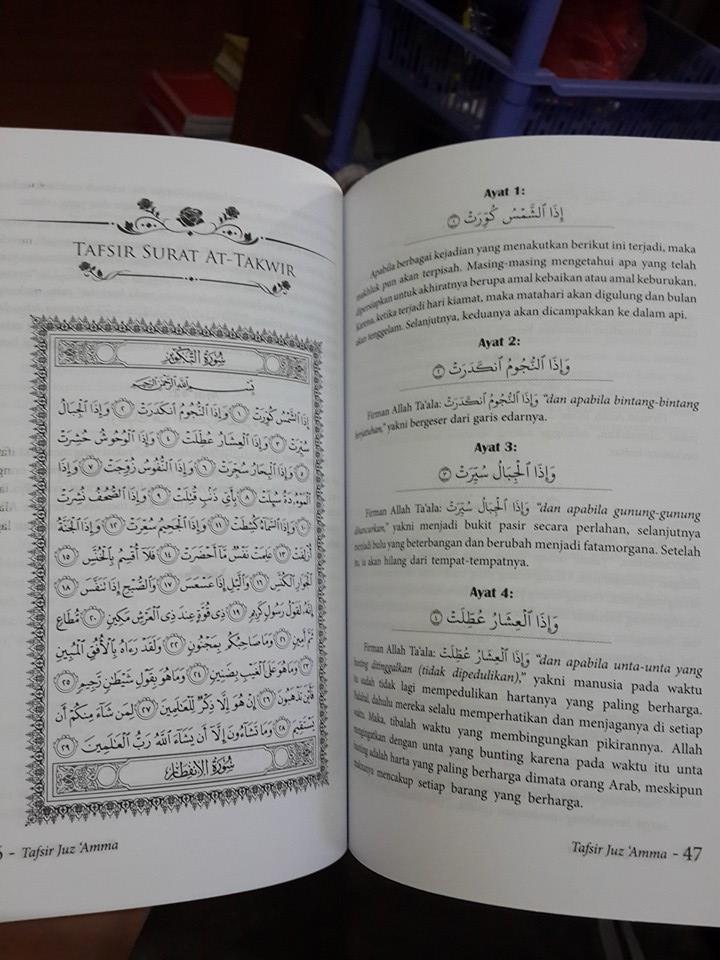 TAFSIR SURAT AT-TAKWIR
سُورَةُ التَّكْوِيرِ
بِسْمِ اللَّهِ الرَّحْمَٰنِ الرَّحِيمِ
إِذَا الشَّمْسُ كُوِّرَتْ ١ وَإِذَا النُّجُومُ انْكَدَرَتْ ٢ وَإِذَا الْجِبَالُ
سُيِّرَتْ ٣ وَإِذَا الْعِشَارُ عُطِّلَتْ ٤ وَإِذَا الْوُحُوشُ حُشِرَتْ
٥ وَإِذَا الْبِحَارُ سُجِّرَتْ ٦ وَإِذَا النُّفُوسُ زُوِّجَتْ ٧ وَإِذَا
الْمَوْءُدَةُ سُئِلَتْ ٨ بِأَيِّ ذَنْبٍ قُتِلَتْ ٩ وَإِذَا الصُّحُفُ نُشِرَتْ
١٠ وَإِذَا السَّمَاءُ كُشِطَتْ ١١ وَإِذَا الْجَحِيمُ سُعِّرَتْ ١٢ وَإِذَا الْجَنَّةُ
أُزْلِفَتْ ١٣ عَلِمَتْ نَفْسٌ مَا أَحْضَرَتْ ١٤ فَلَا أُقْسِمُ بِالْخُنَّسِ ١٥
الْجَوَارِ الْكُنَّسِ ١٦ وَاللَّيْلِ إِذَا عَسْعَسَ ١٧ وَالصُّبْحِ إِذَا تَنَفَّسَ ١٨
إِنَّهُ لَقَوْلُ رَسُولٍ كَرِيمٍ ١٩ ذِي قُوَّةٍ عِنْدَ ذِي الْعَرْشِ مَكِينٍ ٢٠ مُطَاعٍ
ثَمَّ أَمِينٍ ٢١ وَمَا صَاحِبُكُمْ بِمَجْنُونٍ ٢٢ وَلَقَدْ رَآهُ بِالْأُفُقِ الْمُبِينِ
٢٣ وَمَا هُوَ عَلَى الْغَيْبِ بِضَنِينٍ ٢٤ وَمَا هُوَ بِقَوْلِ شَيْطَانٍ رَجِيمٍ ٢٥
فَأَيْنَ تَذْهَبُونَ ٢٦ إِنْ هُوَ إِلَّا ذِكْرٌ لِلْعَالَمِينَ ٢٧ لِمَنْ شَاءَ مِنْكُمْ أَنْ
يَسْتَقِيمَ ٢٨ وَمَا تَشَاءُونَ إِلَّا أَنْ يَشَاءَ اللَّهُ رَبُّ الْعَالَمِينَ ٢٩
سُورَةُ الِانْفِطَارِ
- Tafsir Juz 'Amma
Ayat 1:
إِذَا الشَّمْسُ كُوِّرَتْ ١
Apabila berbagai kejadian yang menakutkan berikut ini terjadi, maka
makhluk pun akan terpisah. Masing-masing mengetahui apa yang telah
dipersiapkan untuk akhiratnya berupa amal kebaikan atau amal keburukan.
Karena, ketika terjadi hari kiamat, maka matahari akan digulung dan bulan
akan tenggelam. Selanjutnya, keduanya akan dicampakkan ke dalam api.
Ayat 2:
وَإِذَا النُّجُومُ انْكَدَرَتْ ٢
Firman Allah Ta'ala: وَإِذَا النُّجُومُ انْكَدَرَتْ "dan apabila bintang-bintang
berjatuhan," yakni bergeser dari garis edarnya.
Ayat 3:
وَإِذَا الْجِبَالُ سُيِّرَتْ ٣
Firman Allah Ta'ala: وَإِذَا الْجِبَالُ سُيِّرَتْ "dan apabila gunung-gunung
dihancurkan," yakni menjadi bukit pasir secara perlahan, selanjutnya
menjadi bulu yang beterbangan dan berubah menjadi fatamorgana. Setelah
itu, ia akan hilang dari tempat-tempatnya.
Ayat 4:
وَإِذَا الْعِشَارُ عُطِّلَتْ ٤
Firman Allah Ta'ala: وَإِذَا الْعِشَارُ عُطِّلَتْ "dan apabila unta-unta yang
bunting ditinggalkan (tidak dipedulikan)," yakni manusia pada waktu
itu sudah tidak lagi mempedulikan hartanya yang paling berharga.
Padahal, dahulu mereka selalu memperhatikan dan menjaganya di setiap
waktu. Maka, tibalah waktu yang membingungkan pikirannya. Allah
mengingatkan dengan unta yang bunting karena pada waktu itu unta
bunting adalah harta yang paling berharga dimata orang Arab, meskipun
maknanya mencakup setiap barang yang berharga.
Tafsir Juz 'Amma - 47